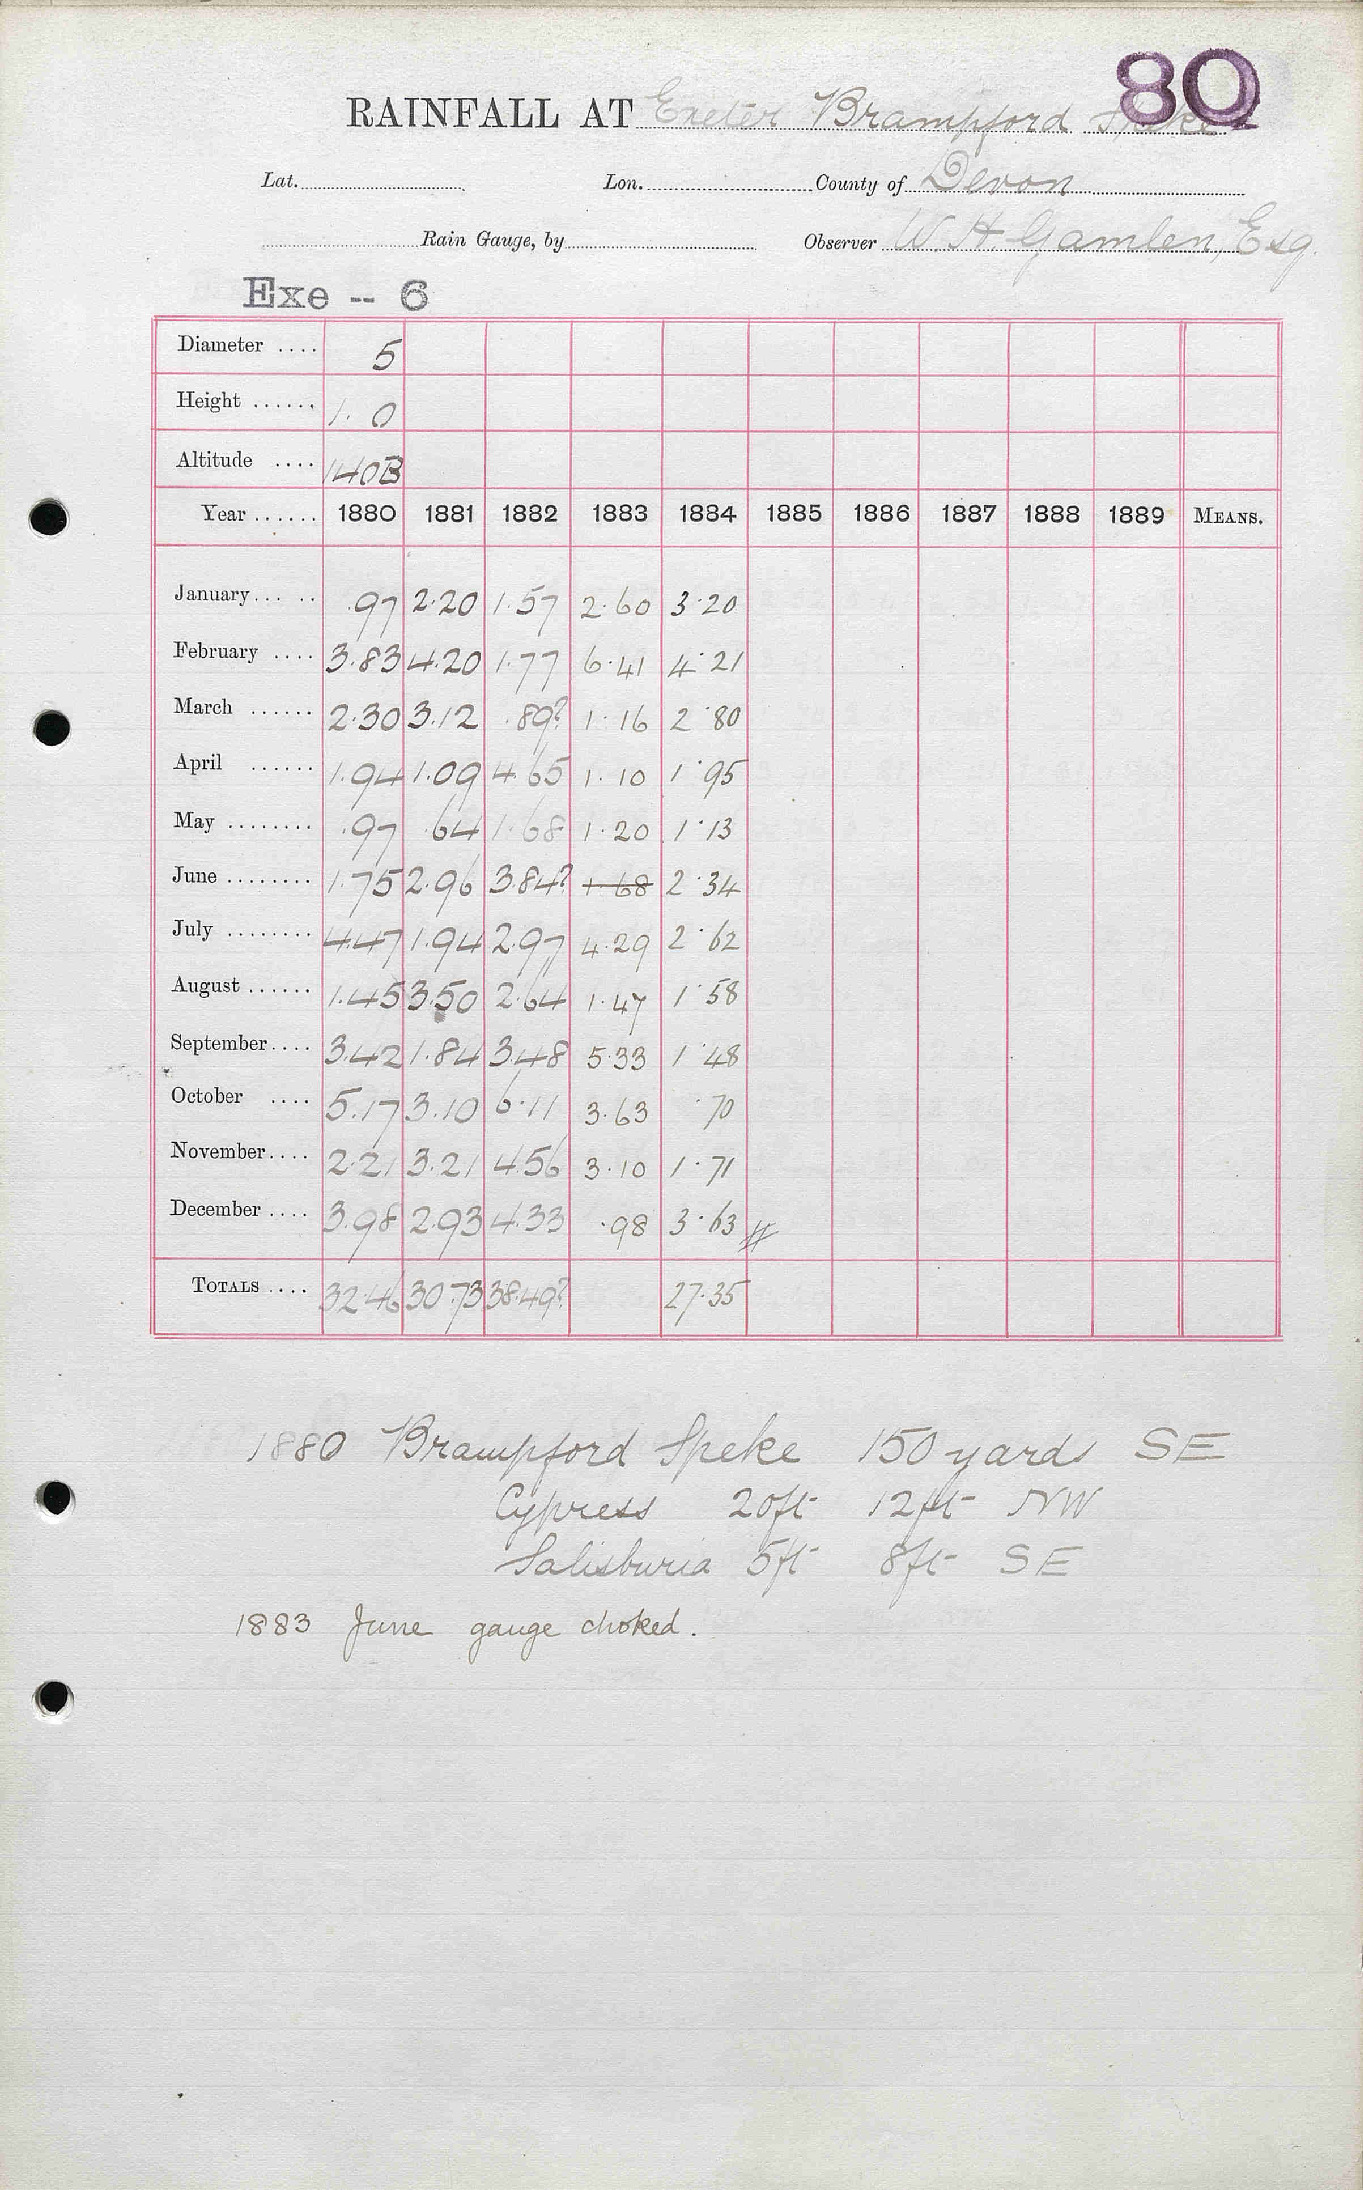 80
RAINFALL AT Exeter Brampford Speke
Lat. Lon. County of Devon
Rain Gauge, by Observer W H Gamlen, Esq.
Exe -- 6
Diameter .... 5
Height ...... 1. 0
Altitude .... 140B
Year ...... 1880 1881 1882 1883 1884 1885 1886 1887 1888 1889 MEANS.
January ... .. .97 2.20 1.57 2.60 3.20
February .... 3.83 4.20 1.77 6.41 4.21
March ...... 2.30 3.12 .89? 1.16 2.80
April ...... 1.94 1.09 4.65 1.10 1.95
May ........ .97 .64 1.68 1.20 1.13
June ........ 1.75 2.96 3.84? 1.68 2.34
July ........ 4.47 1.94 2.97 4.29 2.62
August ...... 1.45 3.50 2.64 1.47 1.58
September .... 3.42 1.84 3.48 5.33 1.48
October .... 5.17 3.10 6.11 3.63 .70
November .... 2.21 3.21 4.56 3.10 1.71
December .... 3.98 2.93 4.33 .98 3.63 #
TOTALS .... 32.46 30.73 38.49? 27.35
1880 Brampford Speke 150 yards SE
Cypress 20ft 12ft NW
Salisburia 5ft 8ft SE
1883 June gauge choked.